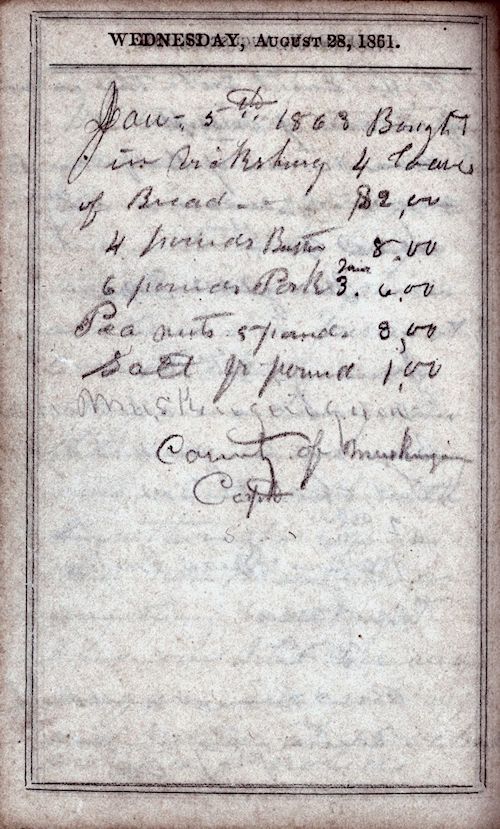 WEDNESDAY, AUGUST 28, 1861.
Jan. 5th 1863 Bought
in Vicksburg 4 loaves
of Bread $2,00
4 pounds Butter 8.00
6 pounds Pork 3. 6,00
Pea nuts 5 pounds 3,00
Salt pr pound 1,00
County of Muskingum
Capt